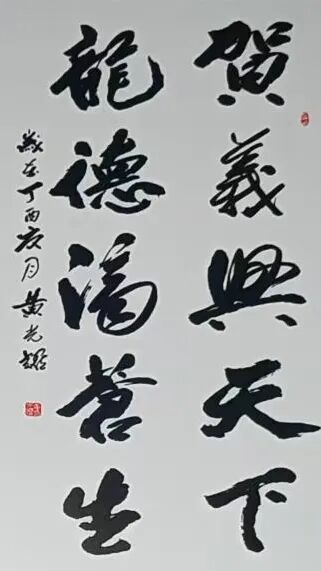 賀義興天下
龍德濟蒼生
歲在丁酉夏月黄光